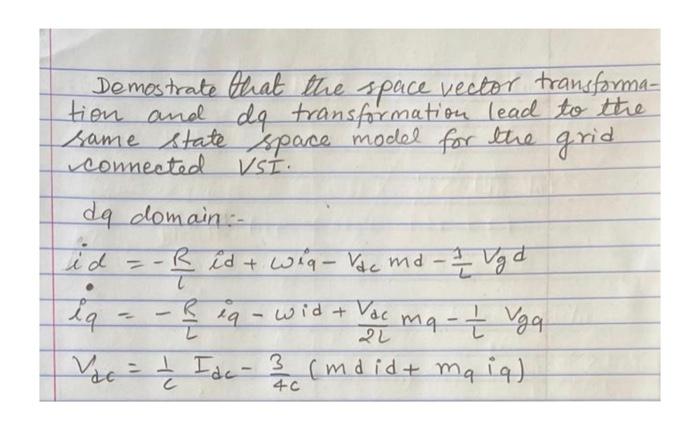 Demostrate that the space vector transforma-
tion and dq transformation lead to the
same state space model for the grid
connected VSI.
dq domain:-
i̇d = -R/L id + ωiq - Vdc md - 1/L Vgd
i̇q = -R/L iq - ωid + Vdc/2L mq - 1/L Vgq
Vdc = 1/C Idc - 3/4C (md id + mq iq)